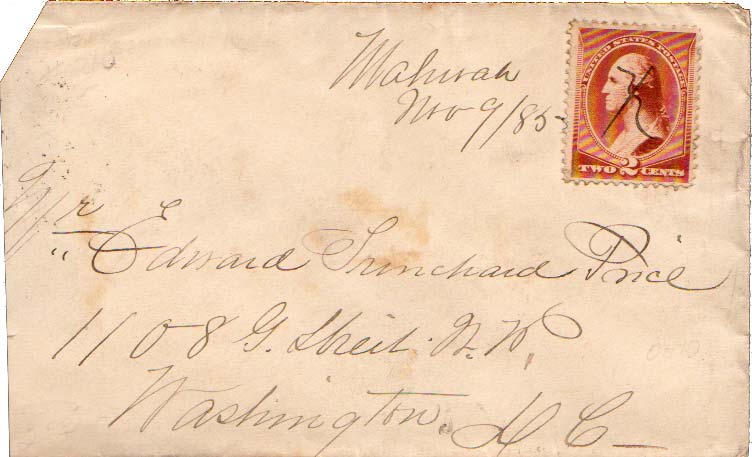 Mahwah
Nov 9/85
UNITED STATES POSTAGE
TWO 2 CENTS
Mr
Edward Trenchard Price
1108 G. Street. N. W,
Washington. D C